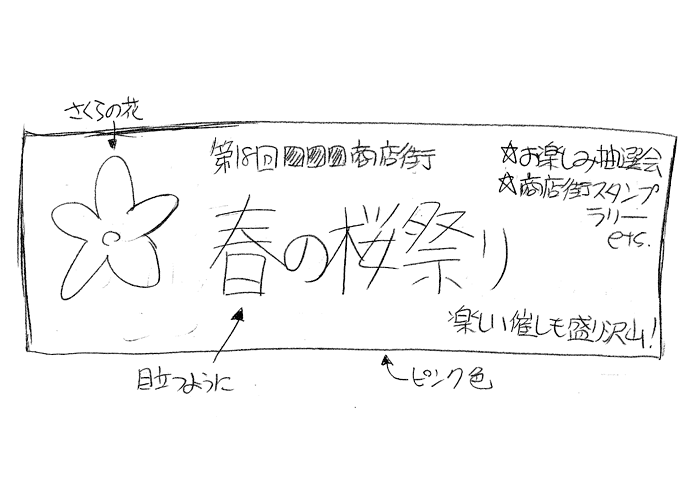 さくらの花
第18回 商店街
☆お楽しみ抽選会
☆商店街スタンプ
ラリー
etc.
春の桜祭り
楽しい催しも盛り沢山!
目立つように
ピンク色